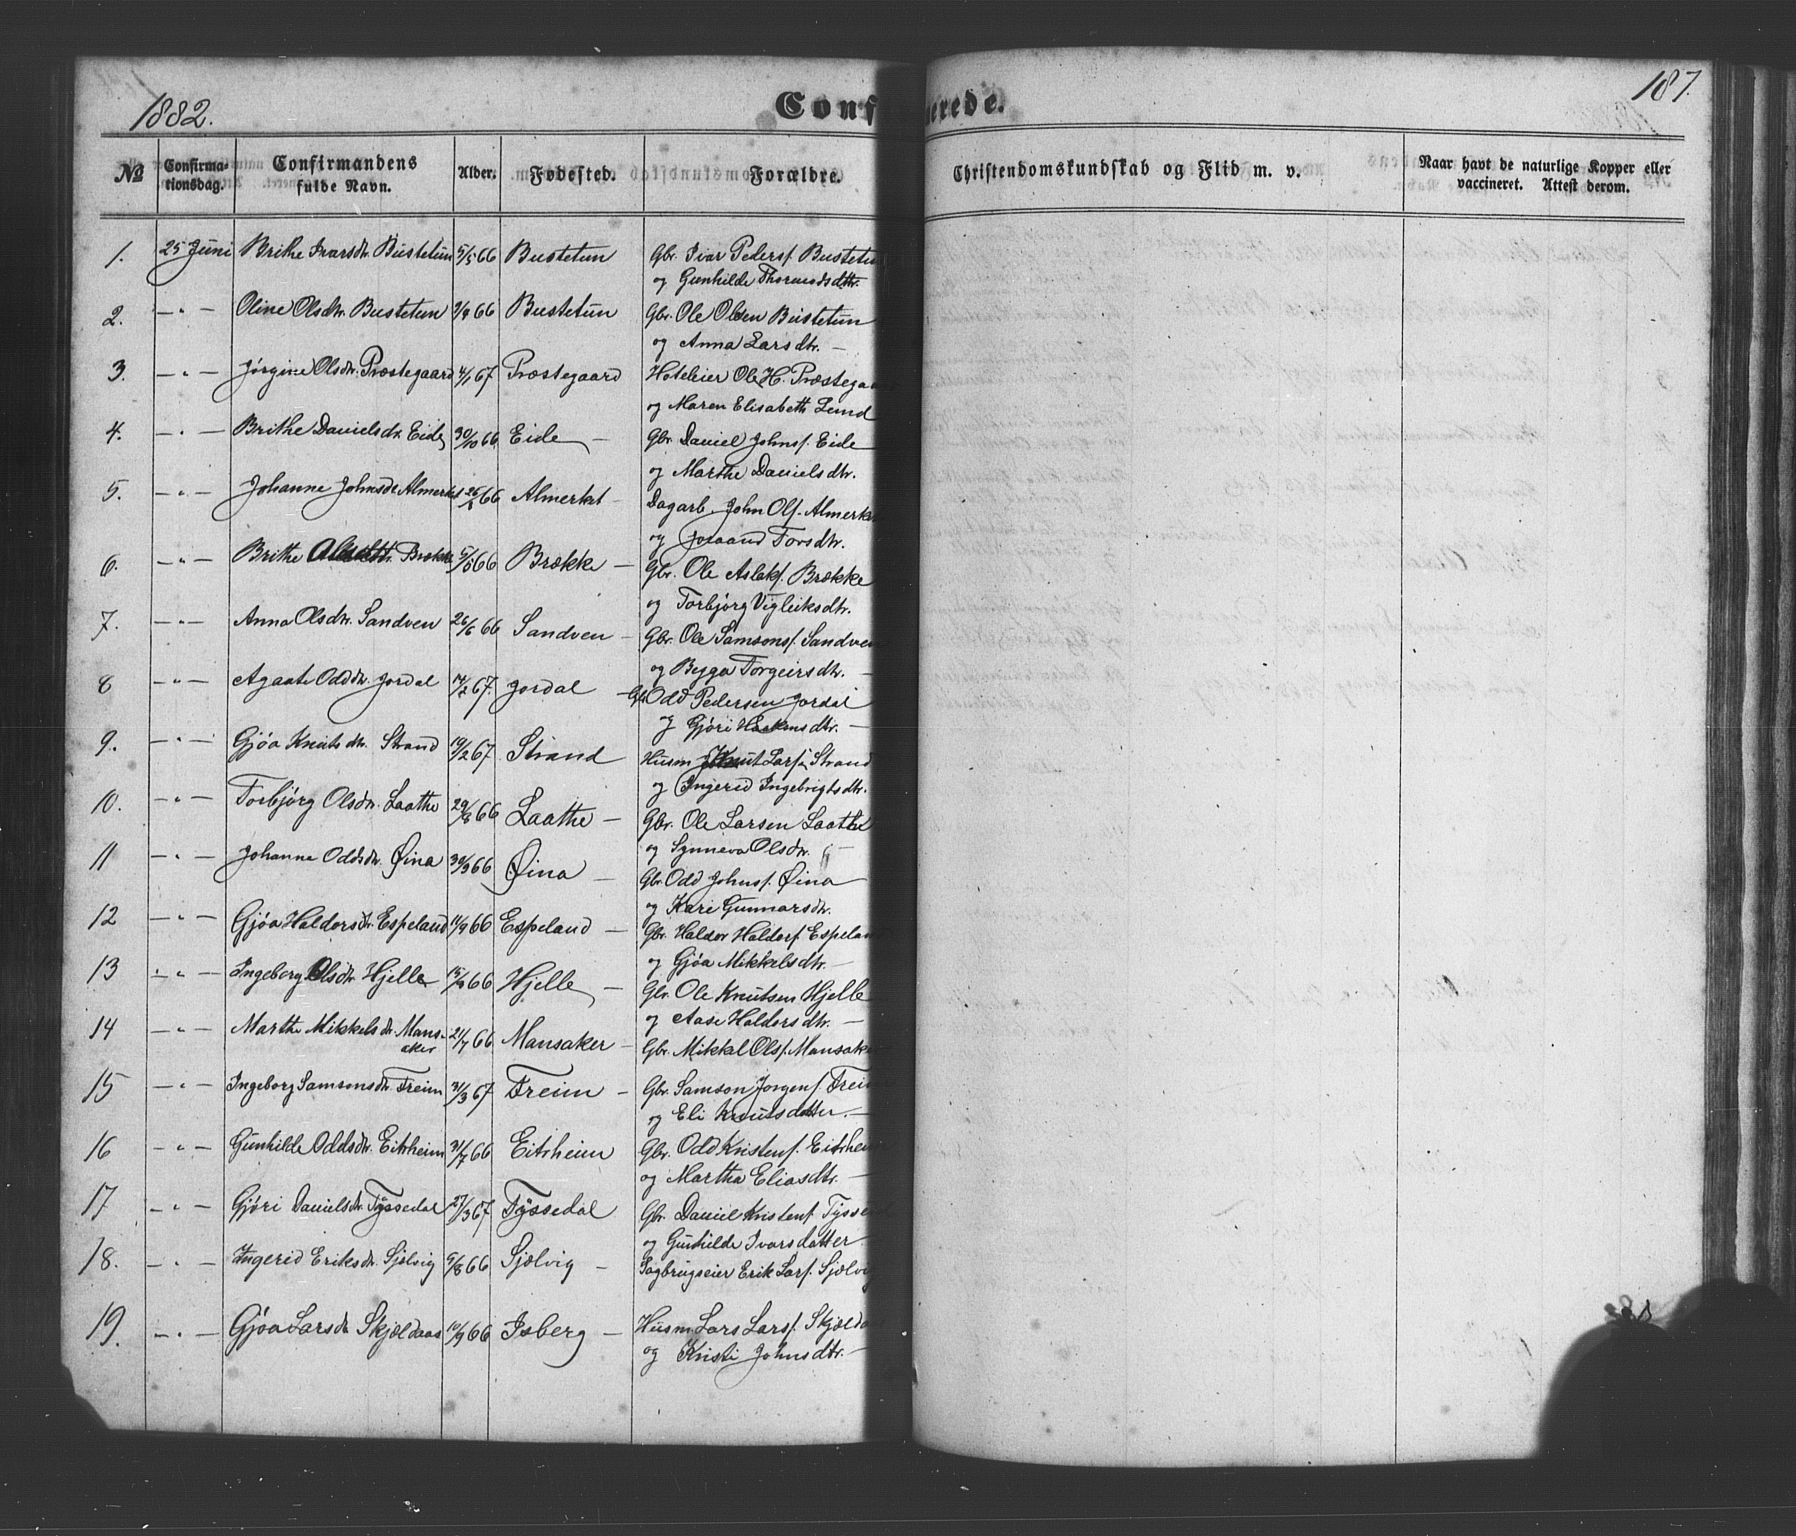 1882.
Conf
erede.
187.
No
Confirma-
tionsdag.
Confirmandens
fulde Navn.
Alder.
Fødested.
Forældre.
Christendomskundskab og Flid m. v.
Naar havt de naturlige Kopper eller
vaccineret. Attest derom.
1. 25 Juni Brithe Ivarsdr. Bustetun 5/5 66 Bustetun Gbr. Ivar Peders. Bustetun
og Gunhilde Thormodsdtr.
2. -"- Oline Olsdtr. Bustetun 66 Bustetun Gbr. Ole Olsen Bustetun
og Anna Larsdtr. -
3. -"- Jørgine Olsdtr. Præstegaard 4/1 67 Præstegaard Hoteleier Ole H. Præstega
og Maren Elisabeth Lund
4. -"- Brithe Danielsdr. Eide 30/10 66 Eide - Gbr. Daniel Johns. Eide
og Marthe Danielsdtr.
5. -"- Johanne Johnsdr. Almerket 66 Almerket - Dagarb. John Ols. Almerke
og Joraand Torsdtr.
6. -"- Brithe Olsdtr. Brække 5/5 66 Brække - Gbr. Ole Aslaks. Brække
og Torbjørg Vigleiksdtr.
7. -"- Anna Olsdtr. Sandven 26/6 66 Sandven - Gbr. Ole Samsons. Sandven
og Bryga Torgeirsdtr. -
8 -"- Agaate Odddr. Jordal 14/2 67. Jordal - Gbr. Odd Pedersen Jordal
og Gjøri Haakonsdtr. -
9. -"- Gjøa Knutsdtr. Strand 19/2 67 Strand Husm. Knut Lars. Strand
og Ingerid Ingebrigtsdtr.
10. -"- Torbjørg Olsdtr. Laathe 29/8 66 Laathe - Gbr. Ole Larsen Laathe
og Synneva Olsdtr. -
11 -"- Johanne Oddsdtr. Øina 30/3 66 Øina - Gbr. Odd Johns. Øina
og Kari Gunnarsdtr.
12 -"- Gjøa Haldorsdr. Espeland 11/9 66 Espeland - Gbr. Haldor Haldors. Espelan
og Gjøa Mikkelsdtr. -
13 -"- Ingeborg Olsdtr. Hjelle 15/9 66 Hjelle - Gbr. Ole Knutsen Hjelle
og Aase Haldorsdtr. -
14 -"- Marthe Mikkelsdr. Mans-
aker 21/7 66 Mansaker - Gbr. Mikkal Ols. Mansake
15 -"- Ingeborg Samsonsdtr. Freim 31/3 67 Freim - Gbr. Samson Jørgens. Freim
og Eli Knutsdatter. -
16 -"- Gunhilde Oddsdtr. Eitrheim 31/7 66 Eitrheim Gbr. Odd Kristens. Eitrhei
og Martha Eliasdtr. -
17 -"- Gjøri Danielsdr. Tyssedal 27/3 67 Tyssedal Gbr. Daniel Kristens. Tysse
og Gunhilde Ivarsdatter -
18. -"- Ingerid Eriksdtr. Sjølvig 9/8 66 Sjølvig - Sagbrugseier Erik Lars. Sjølvig
19. -"- Gjøa Larsdtr. Skjældaas 10/9 66 Isberg - Husm. Lars Lars. Skjælda
og Kristi Johnsdtr. -